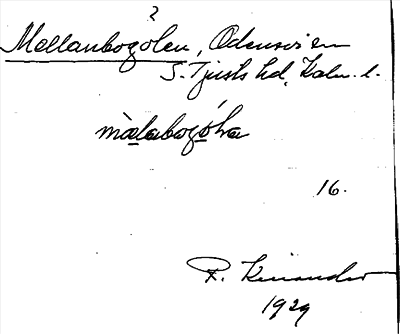 ?
Mellanbogölen, Odensvi sn
S. Tjusts hd, Kalm. l.
màlabogóha
16.
F. Kinander
1929